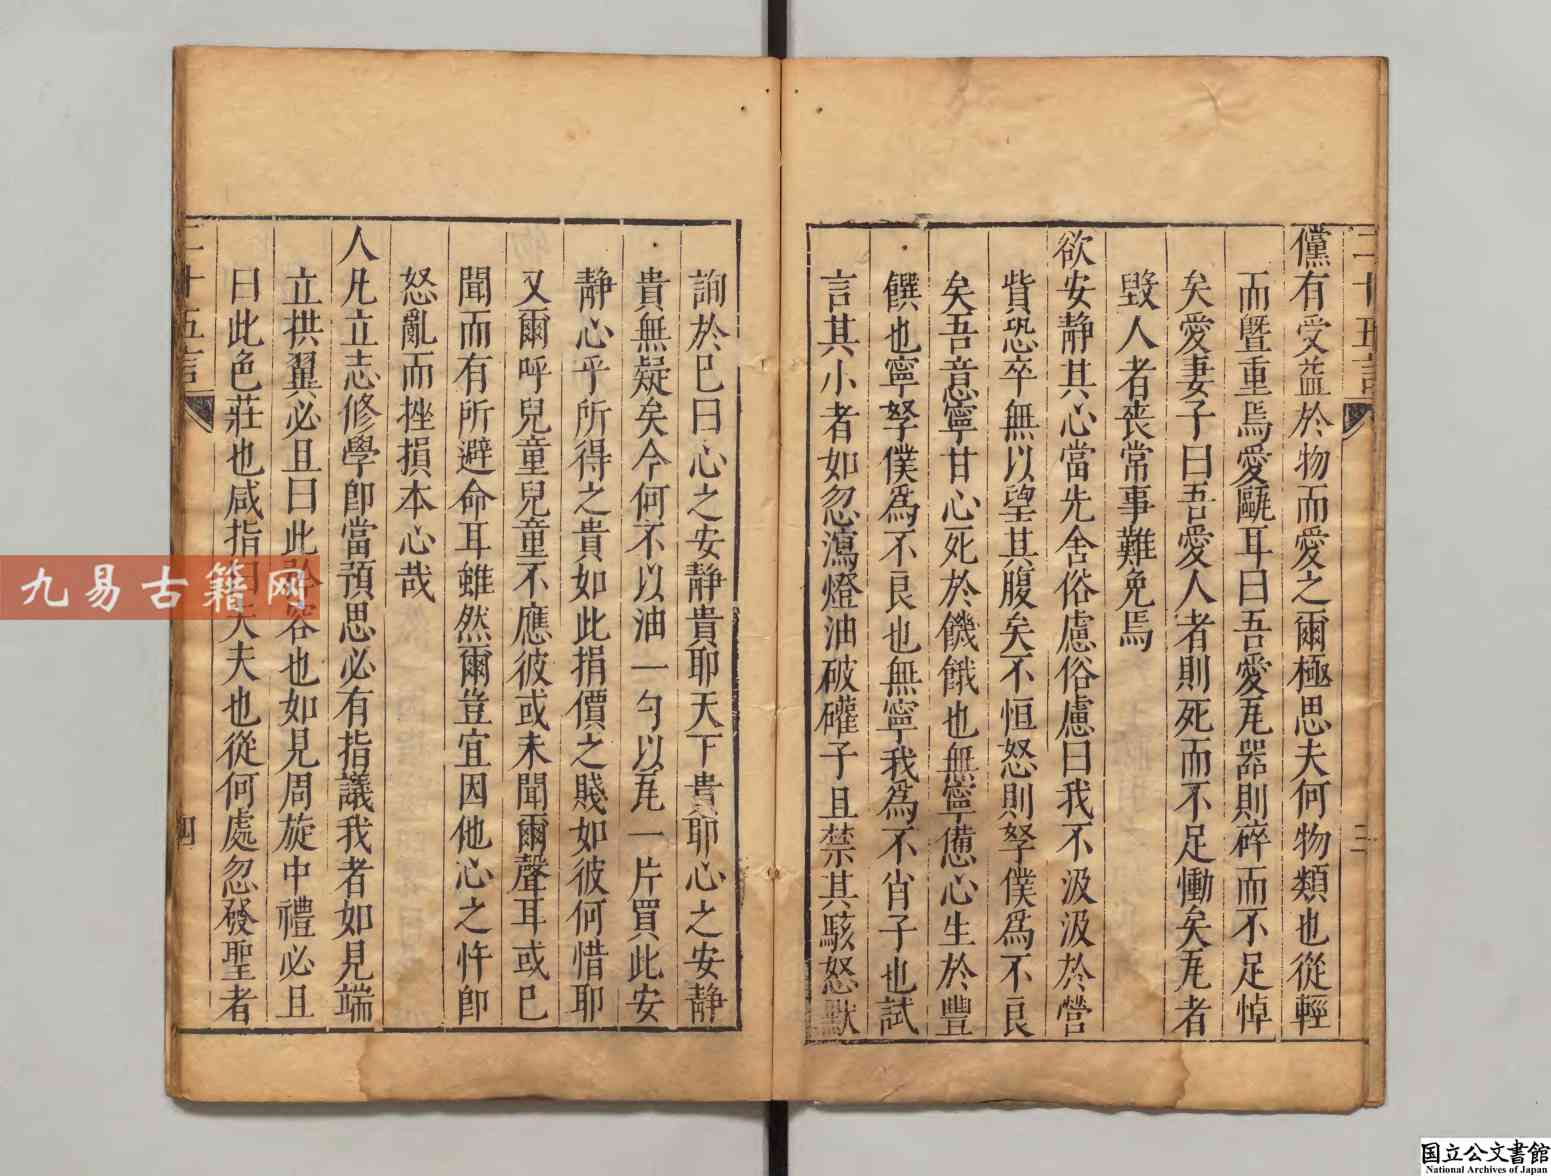 二十五言
三
儻有受益於物而愛之爾極思夫何物類也從輕
而曁重焉愛甌耳曰吾愛瓦器則碎而不足悼
矣愛妻子曰吾愛人者則死而不足慟矣瓦者
毀人者喪常事難免焉
欲安静其心當先舍俗慮俗慮曰我不汲汲於營
貲恐卒無以望其腹矣不恒怒則孥僕為不良
矣吾意寧甘心死於饑餓也無寧憊心生於豐
饌也寧孥僕為不良也無寧我為不肖子也試
言其小者如忽瀉燈油破礶子且禁其駭怒默
詢於已曰心之安静貴耶天下貴耶心之安静
貴無疑矣今何不以油一勺以瓦一片買此安
静心乎所得之貴如此捐價之賤如彼何惜耶
又爾呼兒童兒童不應彼或未聞爾聲耳或已
聞而有所避命耳雖然爾豈宜因他心之忤即
怒亂而挫損本心哉
人凡立志修學即當預思必有指議我者如見端
立拱翼必且曰此容也如見周旋中禮必且
曰此色莊也咸指曰夫也從何處忽發聖者
二十五言
四
九易古籍网
国立公文書館
National Archives of Japan